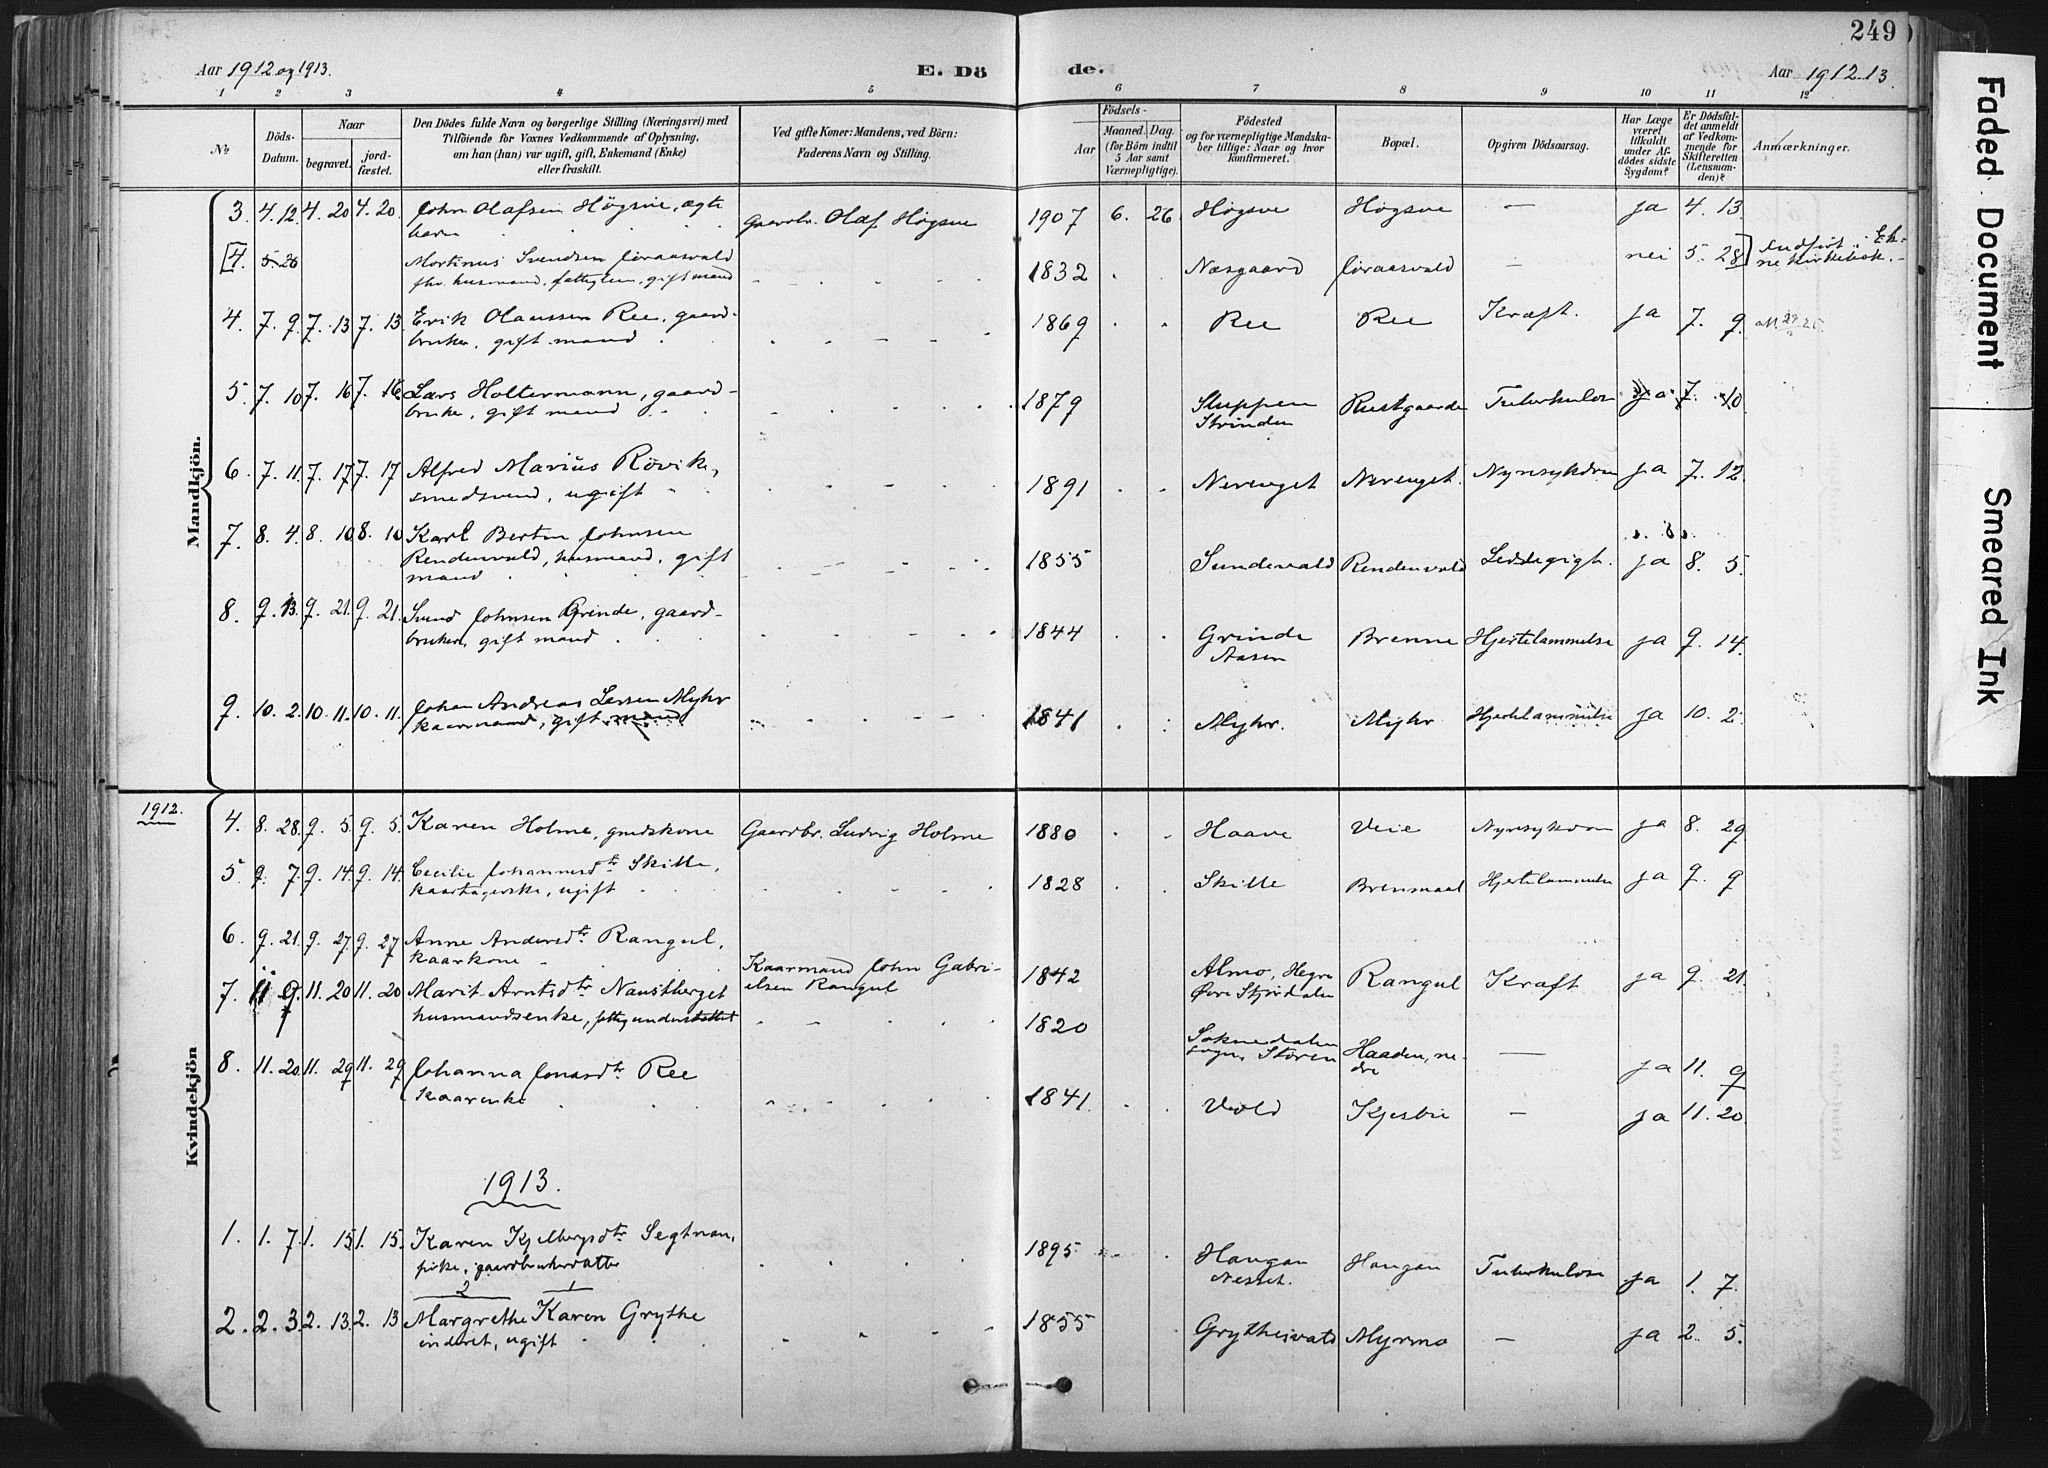 249
Aar 1912 og 1913.
E. Dö
de.
Aar 1912-13
1 2 3 4 5 6 7 8 9 10 11 12
No
Döds-
Datum.
Naar
begravet.
jord-
fæstet.
Den Dödes fulde Navn og borgerlige Stilling (Næringsvei) med
Tilföiende for Voxnes Vedkommende af Oplysning,
om han (hun) var ugift, gift, Enkemand (Enke)
eller fraskilt.
Ved gifte Koner: Mandens, ved Börn:
Faderens Navn og Stilling.
Födsels-
Aar
Maaned. Dag.
(for Börn indtil
5 Aar samt
Værnepligtige).
Födested
og for værnepligtige Mandska-
ber tillige: Naar og hvor
konfirmeret.
Bopæl.
Opgiven Dödsaarsag.
Har Læge
været
tilkaldt
under Af-
dödes sidste
Sygdom?
Er Dödsfal-
det anmeldt
af Vedkom-
mende for
Skifteretten
(Lensman-
den)?
Anmærkninger.
Mandkjön.
3. 4. 12. 4. 20 4. 20. John Olafsen Högsve, ægte Gaardbr. Olaf Högsve 1907 6. 26 Högsve Högsve — ja 4. 13.
barn
4. 5-26 Mortinus Svendsen Joraasvald 1832 Næsgaard Joraasvald — nei 5. 28 Indført i Ek-
fhv. husmand, fattiglem, gift mand ne kirkebok.
4. 7. 9. 7. 13 7. 13 Erik Olaussen Ree, gaard- 1869 Ree Ree Kræft. ja 7. 9.
bruker, gift mand
5. 7. 10 7. 16 7. 16. Lars Holtermann, gaard- 1879 Sluppen Rustgaarden Tuberkulose ja 7. 10
bruker, gift mand Strinden
6. 7. 11. 7. 17 7. 17 Alfred Marius Rövik, 1891 Nerenget Nerenget. Nyresykdom ja 7. 12.
smedsvend, ugift
7. 8. 4. 8. 10 8. 10 Karl Bertin Johnsen
Rendenvald, husmand, gift 1855 Sundevald Rendenvald Leddegigt. ja 8. 5.
mand
8. 9. 13. 9. 21. 9. 21. Svend Johnsen Grinde, gaard- 1844 Grinde Brenne Hjertelammelse ja 9. 14.
bruker, gift mand Aasen
9. 10. 2. 10. 11. 10. 11. Johan Andreas Larsen Myhr 1841 Myhr. Myhr Hjertelammelse ja 10. 2.
kaarmand, gift mand
1912.
Kvindekjön
4. 8. 28. 9. 5. 9. 5. Karen Holme, grdskone Gaardbr. Ludvig Holme 1880 Haave Veie Nyresykdom ja 8. 29
5. 9. 7. 9. 14. 9. 14. Cecilie Johannesdtr Skille, 1828 Skille Brenmaal Hjertelammelse ja 9. 9
kaartagerske, ugift
6. 9. 21. 9. 27. 9. 27 Anne Andersdtr Rangul, Kaarmand John Gabri- 1842 Almo, Hegre Rangul Kræft ja 9. 21.
kaarkone elsen Rangul Övre Stjördalen
7. 11 9. 11. 20 11. 20 Marit Arntsdtr Naustberget 1820 Soknedalen Haaden, ne- — ja 11. 9
husmandsenke, fattigunderstøttet sogn, Støren dre
8. 11. 20. 11. 29 11. 29 Johanna Jonasdtr Ree 1841. Vold Kjesbu — ja 11. 20
Kaarenke
1913.
1. 1. 7. 1. 15. 1. 15. Karen Kjelbergsdtr Segtnan, 1895 Haugan Haugan Tuberkulose ja 1. 7.
pike, gaardbrukerdatter Nesset.
2 1
2. 2. 3. 2. 13. 2. 13 Margrethe Karen Grythe 1855 Grytheivald Myrmo — ja 2. 5.
inderst, ugift
Faded Document
Smeared Ink